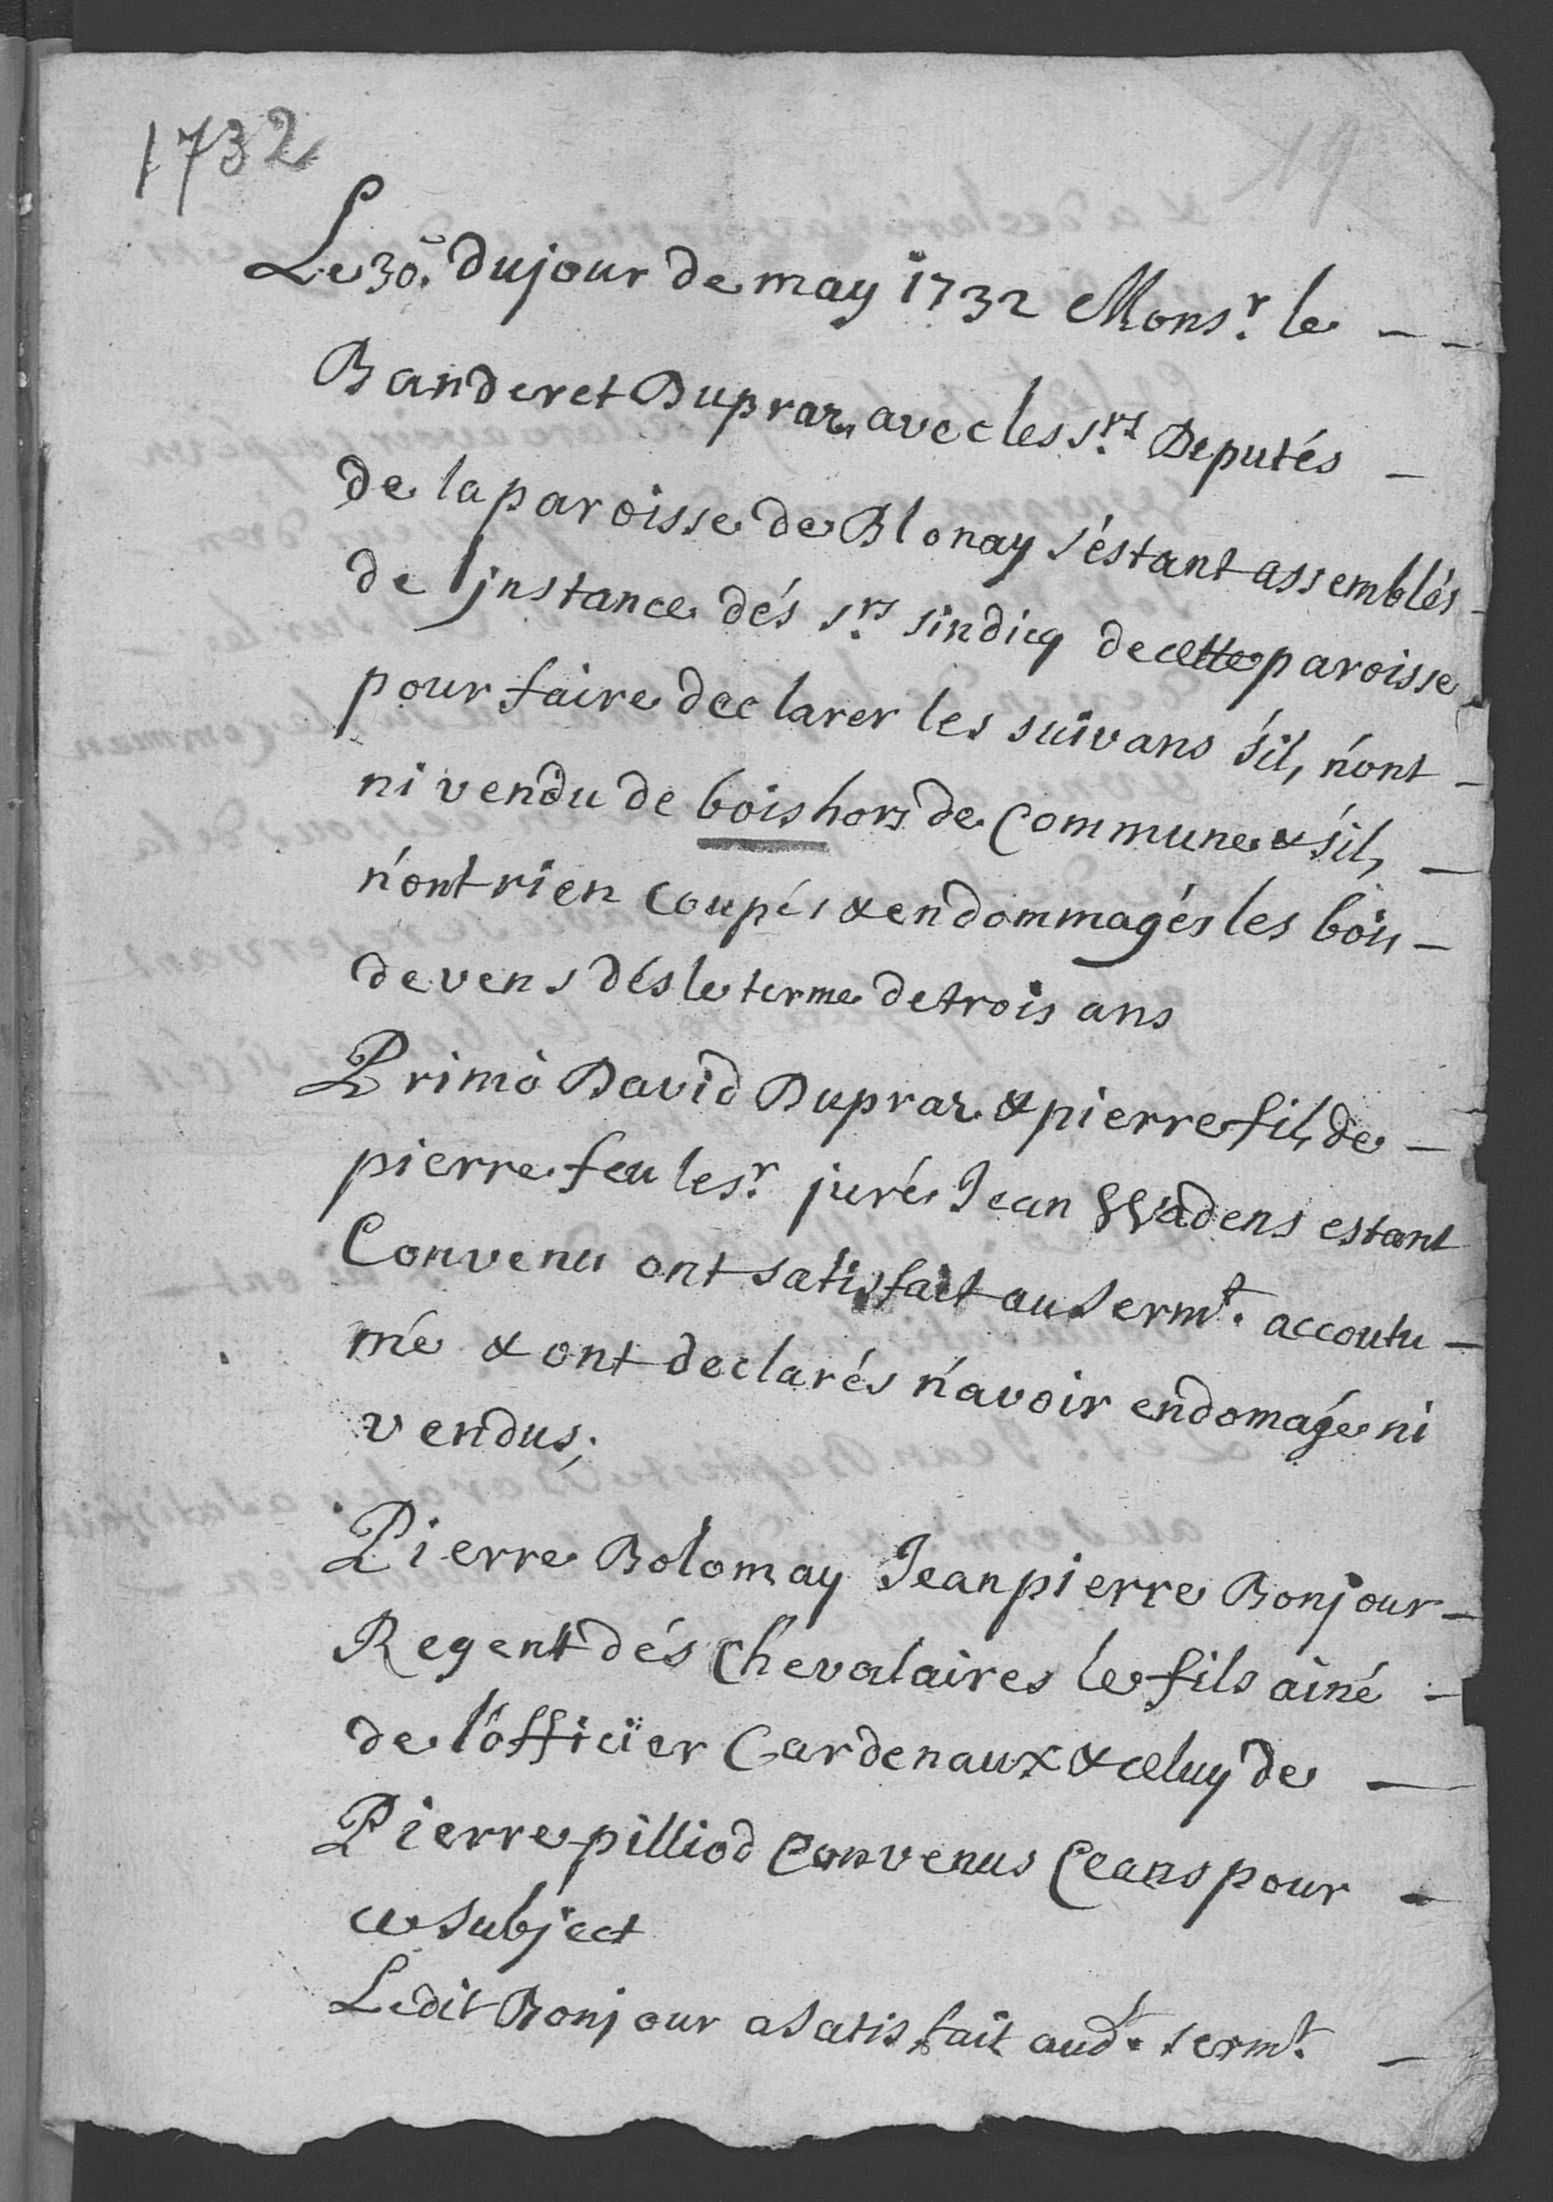 1732
19
Le 30.e du jour de may 1732 Mons.r le
Banderet Dupraz, avec les s.rs Deputés
de la paroisse de Blonay s'éstant assemblés
de l'jnstance dés s.rs sindicq de cette paroisse
pour faire declarer les suivans s'il, n'ont
ni vendu de bois hors de Commune & s'il,
n'ont rien coupés & endommagés les bois
devens dés le terme de trois ans
Primò David Dupraz & pierre fil, de
pierre feu le s.r juré Jean Wadens estant
Convenu ont satisfait au serm.t accoutu
mé & ont declarés n'avoir endomagé ni
vendus;
Pierre Bolomay Jean pierre Bonjour
Regent dés Chevalaires le fils ainé
de l'officier Cardenaux & celuy de
Pierre pilliod Convenus Ceans pour
ce subject
Ledit Bonjour a satisfait aud.t serm.t